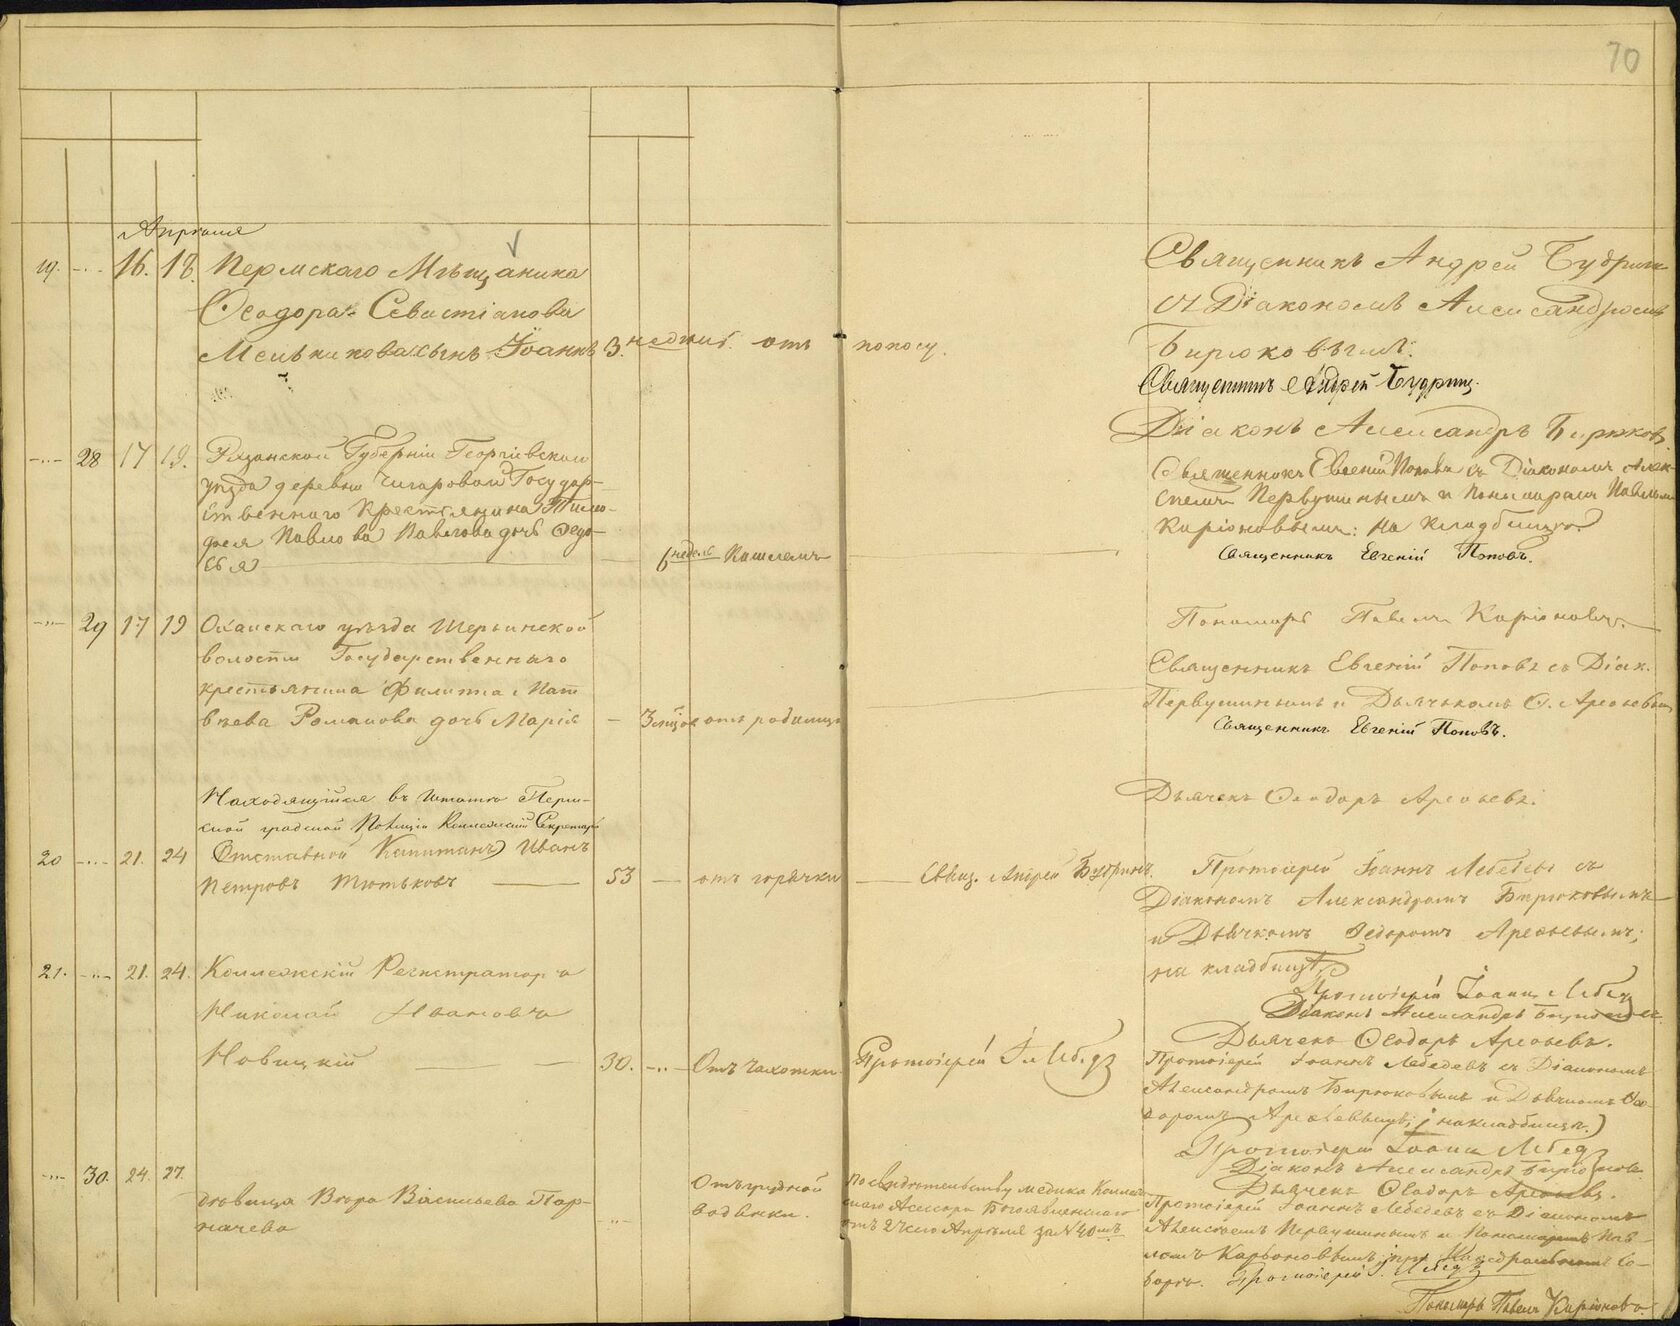 70
Апреля
19. -..- 16. 18. Пермскаго Мѣщанина
Ѳеодора Севастіанова
Мельникова сынъ Іоаннъ 3. недѣл. отъ поносу.
Священникъ Андрей Будрин
съ Діакономъ Александромъ
Бирюковымъ.
Священникъ Андрей Будринъ.
Діаконъ Александръ Бирюковъ
-..- 28 17 19. Губерніи Георгіевскаго
уѣзда деревни Государ-
ственнаго Крестьянина Тимо-
фея Павлова дочь Ѳедо-
сья 6 недель Кашлемъ
Священникъ Евгеній Поповъ съ Діакономъ Алек-
сѣемъ Первушинымъ и Пономаремъ Павломъ
Киріоновымъ: на кладбищѣ
Священникъ Евгеній Поповъ.
Пономарь Павелъ Киріоновъ.
-..- 29 17 19 Оханскаго уѣзда Шерьинской
волости Государственнаго
крестьянина Филиппа Мат
вѣева Романова дочь Марія - 3 мѣсяц. отъ родимца
Священникъ Евгеній Поповъ съ Діак.
Первушинымъ и Дьячкомъ Ѳ. Арефьевым
Священникъ Евгеній Поповъ.
Дьячекъ Ѳеодоръ Арефьевъ.
Находящійся въ Штатѣ Перм-
ской градской Полиціи Коллежскій Секретарь
20 -..- 21. 24 Отставной Капитанъ Иванъ
Петровъ Тютьковъ 53 — отъ горячки — Свящ. Андрей Будринъ.
Протоіерей Іоаннъ Лебедевъ съ
Діакономъ Александромъ Бирюковымъ
и Дьячкомъ Ѳедоромъ Арефьевымъ;
на кладбищѣ
Протоіерей Іоаннъ Лебед
Діаконъ Александръ Бирюковъ.
Дьячекъ Ѳеодоръ Арефьевъ.
21. -..- 21. 24. Коллежскій Регистраторъ
Николай Ивановъ
Новицкій 30. -..- Отъ чахотки Протоіерей І. Лебед
Протоіерей Іоаннъ Лебедевъ съ Діакономъ
Александромъ Бирюковымъ и Дьячкомъ Ѳео-
доромъ Арефьевымъ; на кладбищѣ.
Протоіерей Іоаннъ Лебед
Діаконъ Александръ Бирюковъ
Дьячекъ Ѳеодоръ Арефьевъ.
-..- 30. 24. 27. дѣвица Вѣра Васильева Пор-
начева -..- Отъ грудной
водянки.
По свидѣтельству медика Коллеж
скаго Асессора Богоявленскаго
отъ Апрѣля за № 40мъ
Протоіерей Іоаннъ Лебедевъ съ Діакономъ
Алексѣемъ Первушинымъ и Пономаремъ Пав-
ломъ Карьоновымъ; при Кафедральномъ Со-
борѣ. Протоіерей І. Лебед
Пономарь Павелъ Киріоновъ.